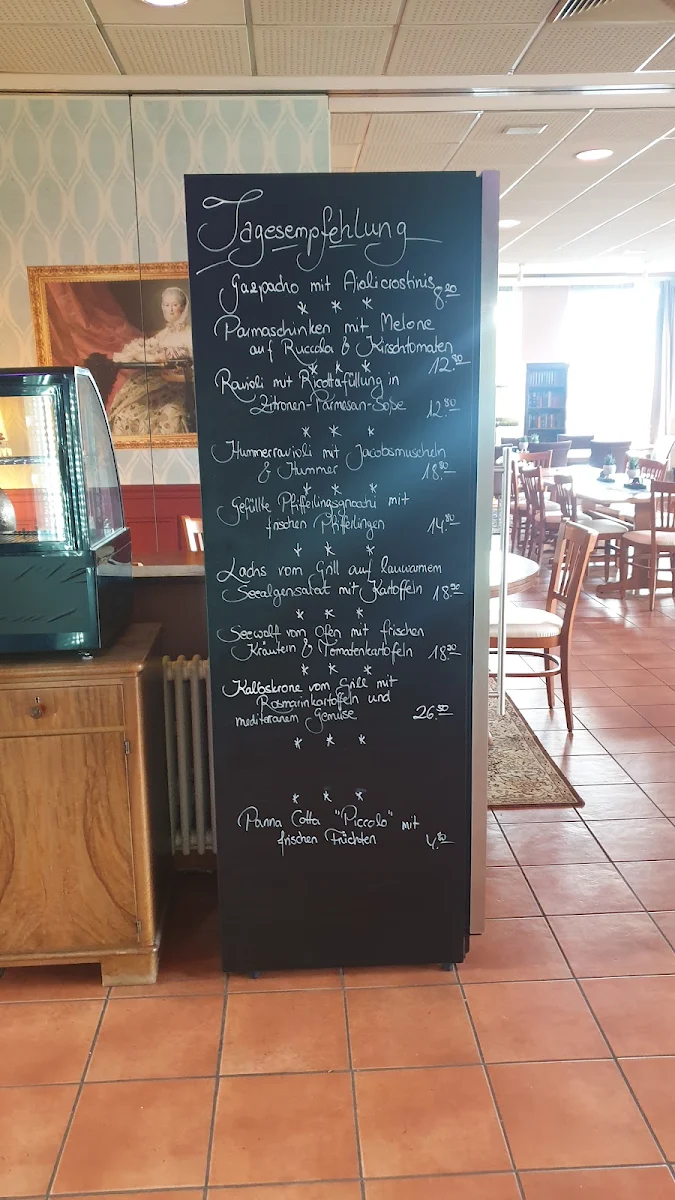 Tagesempfehlung
Gazpacho mit Aiolicrostinis 8.20
* * *
Parmaschinken mit Melone
auf Ruccola & Kirschtomaten 12.80
* * *
Ravioli mit Ricottafüllung in
Zitronen-Parmesan-Soße 12.80
* * *
Hummerravioli mit Jacobsmuscheln
& Hummer 18.80
* * *
Gefüllte Pfifferlingsgnocchi mit
frischen Pfifferlingen 14.80
* * *
Lachs vom Grill auf lauwarmem
Seealgensalat mit Kartoffeln 18.90
* * *
Seewolf vom Ofen mit frischen
Kräutern & Tomatenkartofeln 18.20
* * *
Kalbskrone vom Grill mit
Rosmarinkartoffeln und
mediteranem Gemüse 26.50
* * *
* * *
Panna Cotta "Piccolo" mit
frischen Früchten 4.80